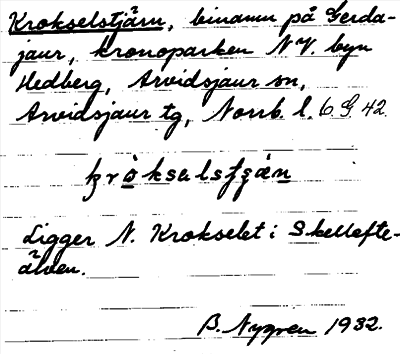 Krokselstjärn, binamn på Gerda-
jaur, kronoparken NV. byn
Hedberg, Arvidsjaur sn,
Arvidsjaur tg, Norrb. l. 6 G. 42
Ligger N. Krokselet i Skellefte-
älven.
B. Nygren 1932.